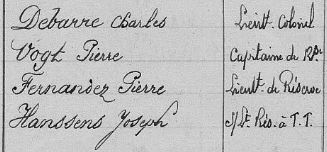 Debarre Charles Lieut. Colonel
Vogt Pierre Capitaine de Rve
Fernandez Pierre Lieut. de Réserve
Hanssens Joseph S/Lt Rés. à T.T.